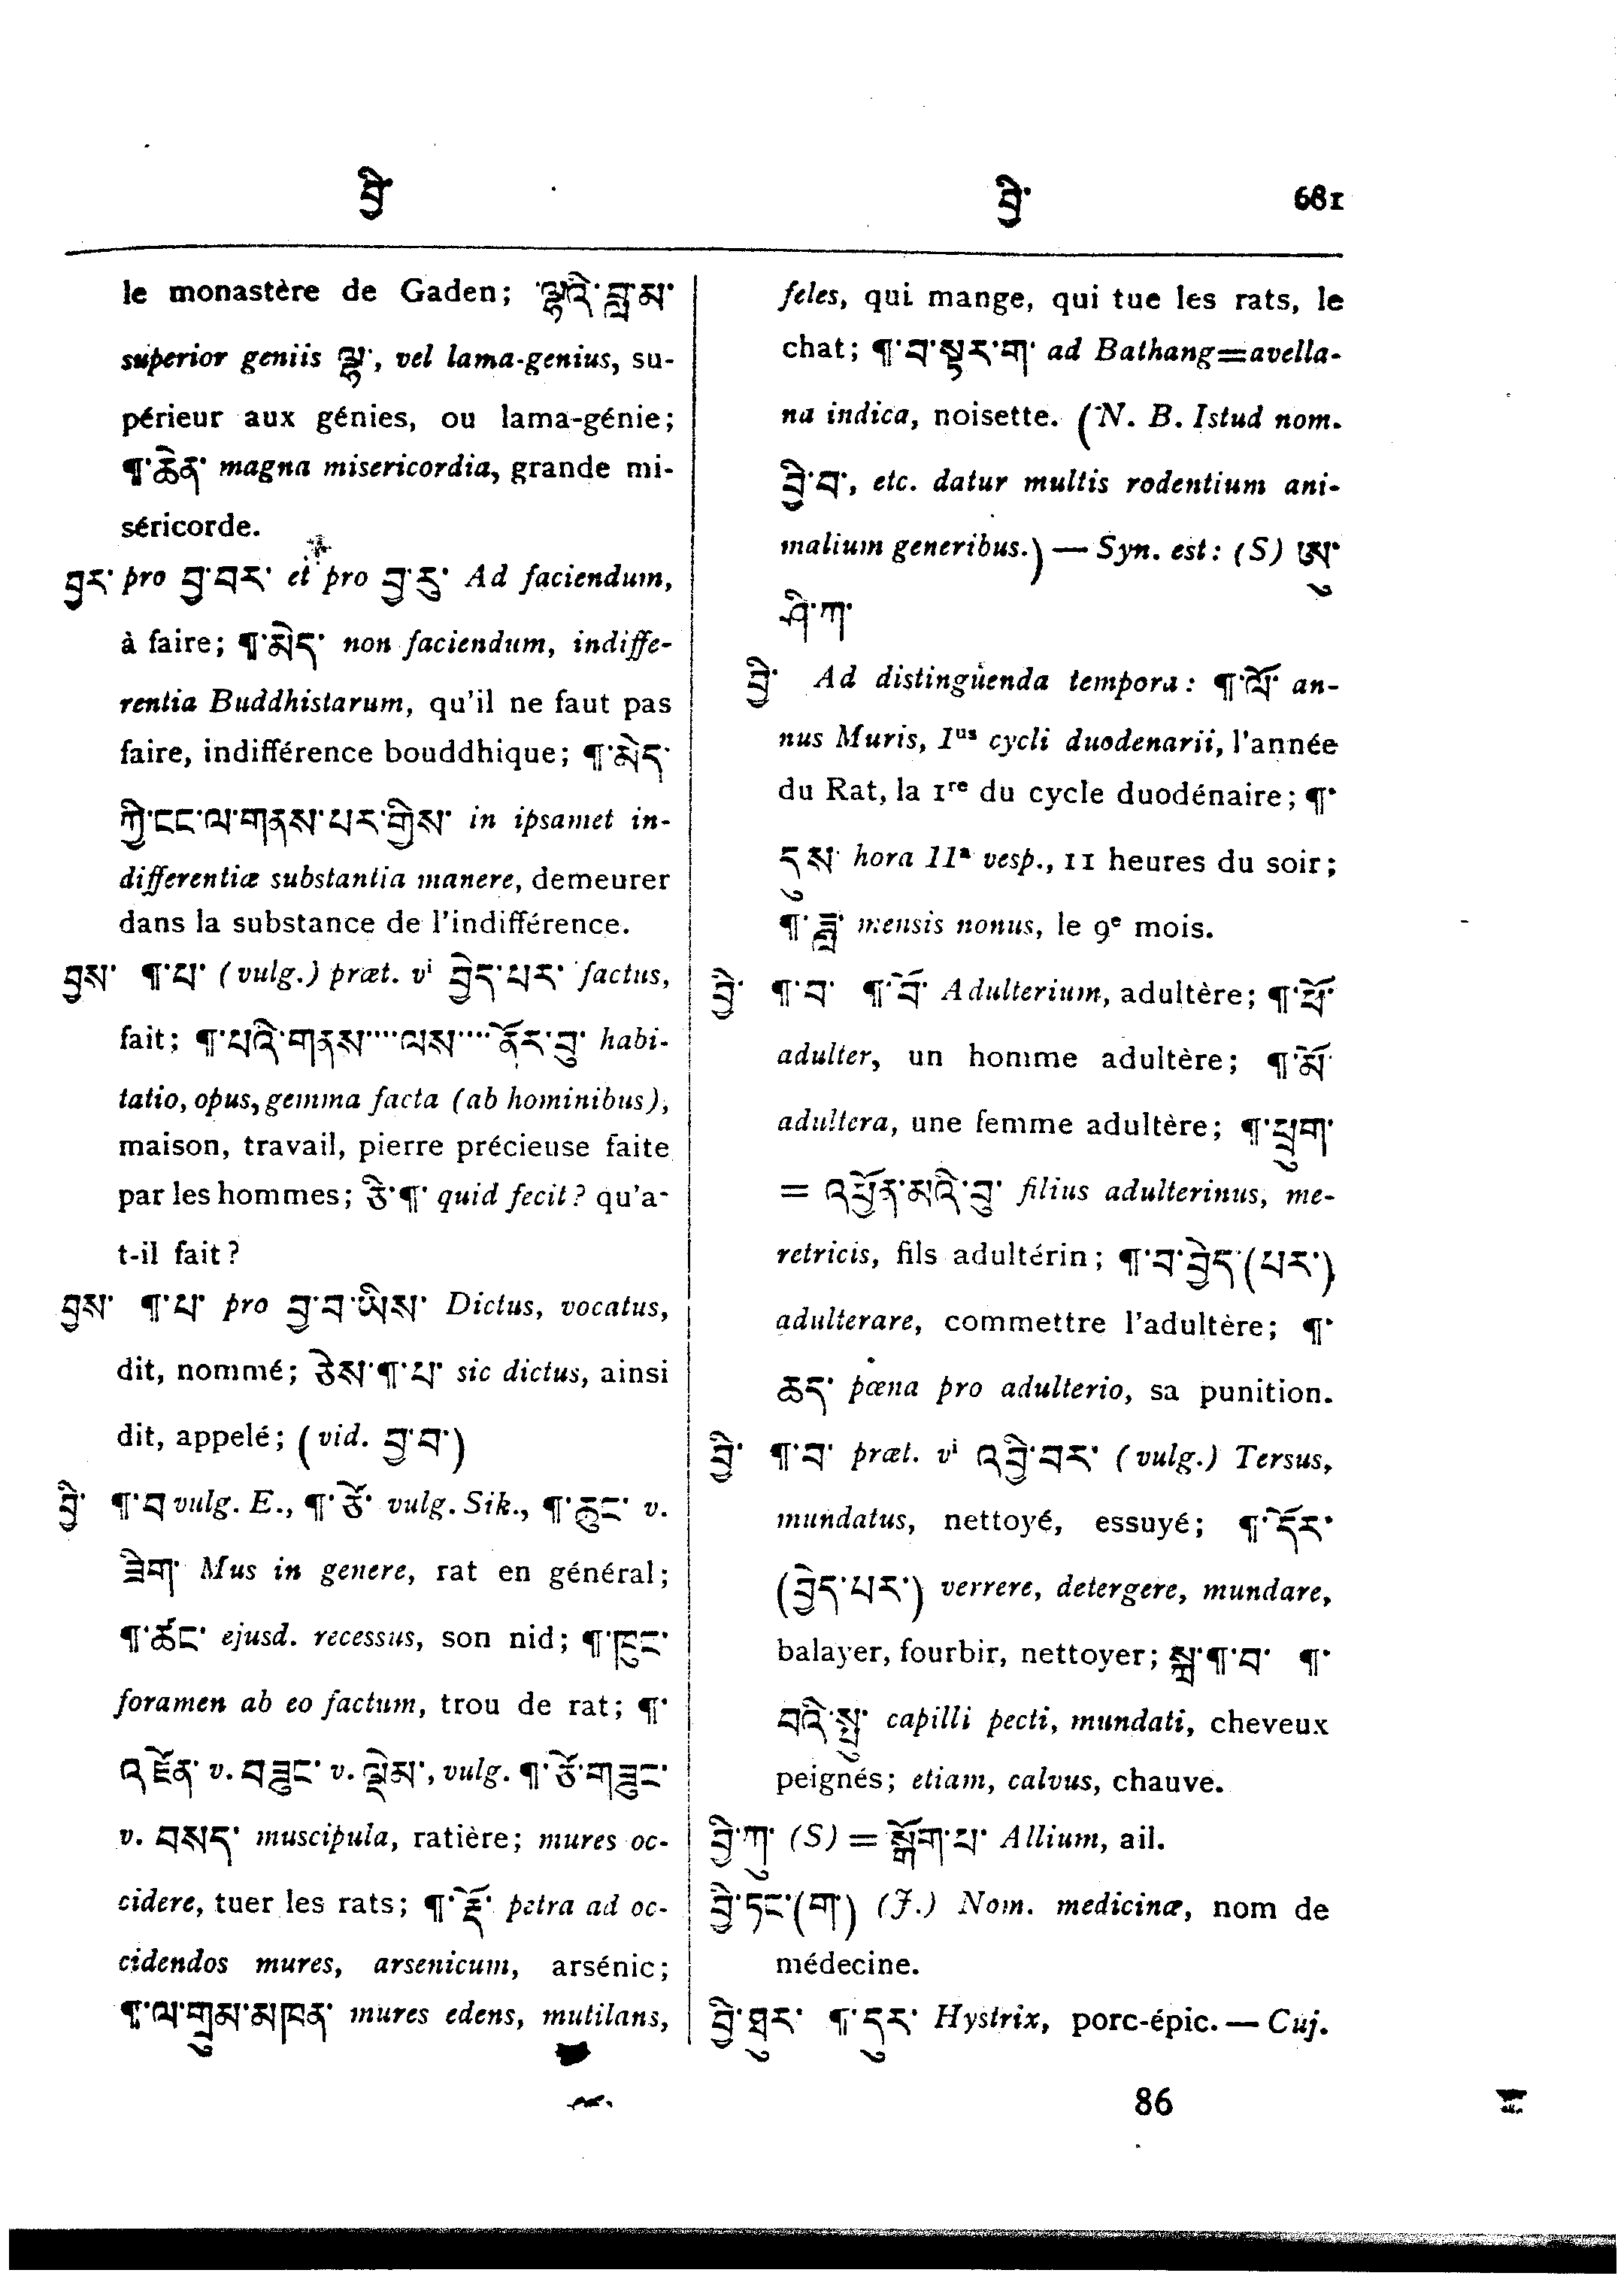 བྱི་
བྱི་ 681
le monastère de Gaden; ལྷའི་བླ་མ་
superior geniis ལྷ་, vel lama-genius, su-
périeur aux génies, ou lama-génie;
¶་ཆེན་ magna misericordia, grande mi-
séricorde.
བྱར་ pro བྱ་བར་ et pro བྱ་རུ་ Ad faciendum,
à faire; ¶་མེད་ non faciendum, indiffe-
rentia Buddhistarum, qu'il ne faut pas
faire, indifférence bouddhique; ¶་མེད་
ཀྱི་ངང་ལ་གནས་པར་གྱིས་ in ipsamet in-
differentiæ substantia manere, demeurer
dans la substance de l'indifférence.
བྱས་ ¶་པ་ (vulg.) præt. vi བྱེད་པར་ factus,
fait; ¶་པའི་གནས་····ལས་····ནོར་བུ་ habi-
tatio, opus, gemma facta (ab hominibus),
maison, travail, pierre précieuse faite
par les hommes; ཅི་¶་ quid fecit? qu'a-
t-il fait?
བྱས་ ¶་པ་ pro བྱ་བ་ཡིས་ Dictus, vocatus,
dit, nommé; ཅེས་¶་པ་ sic dictus, ainsi
dit, appelé; (vid. བྱ་བ་)
བྱི་ ¶་བ vulg. E., ¶་ཙི་ vulg. Sik., ¶་ཆུང་ v.
ཟེག་ Mus in genere, rat en général;
¶་ཚང་ ejusd. recessus, son nid; ¶་ཁུང་
foramen ab eo factum, trou de rat; ¶་
འཛིན་ v. བཟུང་ v. ལྡེམ་, vulg. ¶་ཙི་གཟུང་
v. བསད་ muscipula, ratière; mures oc-
cidere, tuer les rats; ¶་རྡོ་ petra ad oc-
cidendos mures, arsenicum, arsénic;
¶་ལ་གྲུམ་མཁན་ mures edens, mutilans,
feles, qui mange, qui tue les rats, le
chat; ¶་བ་སྟར་ག་ ad Bathang=avella-
na indica, noisette. (N. B. Istud nom.
བྱི་བ་, etc. datur multis rodentium ani-
malium generibus.) — Syn. est: (S) ཨུ་
ཤི་ཀ་
བྱི་ Ad distinguenda tempora: ¶་ལོ་ an-
nus Muris, 1us cycli duodenarii, l'année
du Rat, la 1re du cycle duodénaire; ¶་
དུས་ hora 11a vesp., 11 heures du soir;
¶་ཟླ་ mensis nonus, le 9e mois.
བྱི་ ¶་བ་ ¶་བོ་ Adulterium, adultère; ¶་ཕོ་
adulter, un homme adultère; ¶་མོ་
adultera, une femme adultère; ¶་ཕྲུག་
= འཕྱོན་མའི་བུ་ filius adulterinus, me-
retricis, fils adultérin; ¶་བ་བྱེད་(པར་)
adulterare, commettre l'adultère; ¶་
ཆད་ pœna pro adulterio, sa punition.
བྱི་ ¶་བ་ præt. vi འབྱི་བར་ (vulg.) Tersus,
mundatus, nettoyé, essuyé; ¶་དོར་
(བྱེད་པར་) verrere, detergere, mundare,
balayer, fourbir, nettoyer; སྐྲ་¶་བ་ ¶་
བའི་སྤུ་ capilli pecti, mundati, cheveux
peignés; etiam, calvus, chauve.
བྱི་ཀུ་ (S) = སྒོག་པ་ Allium, ail.
བྱི་ཏང་(ག་) (J.) Nom. medicinæ, nom de
médecine.
བྱི་ཐུར་ ¶་དུར་ Hystrix, porc-épic. — Cuj.
86